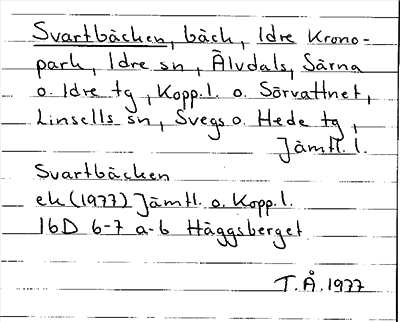 Svartbäcken, bäck, Idre Krono-
park, Idre sn, Älvdals, Särna
o. Idre tg, Kopp.l. o. Sörvattnet,
Linsells sn, Svegs o. Hede tg,
Jämtl. l.
Svartbäcken
ek (1977) Jämtl. o. Kopp.l.
16D 6-7 a-b Häggsberget
T.Å. 1977